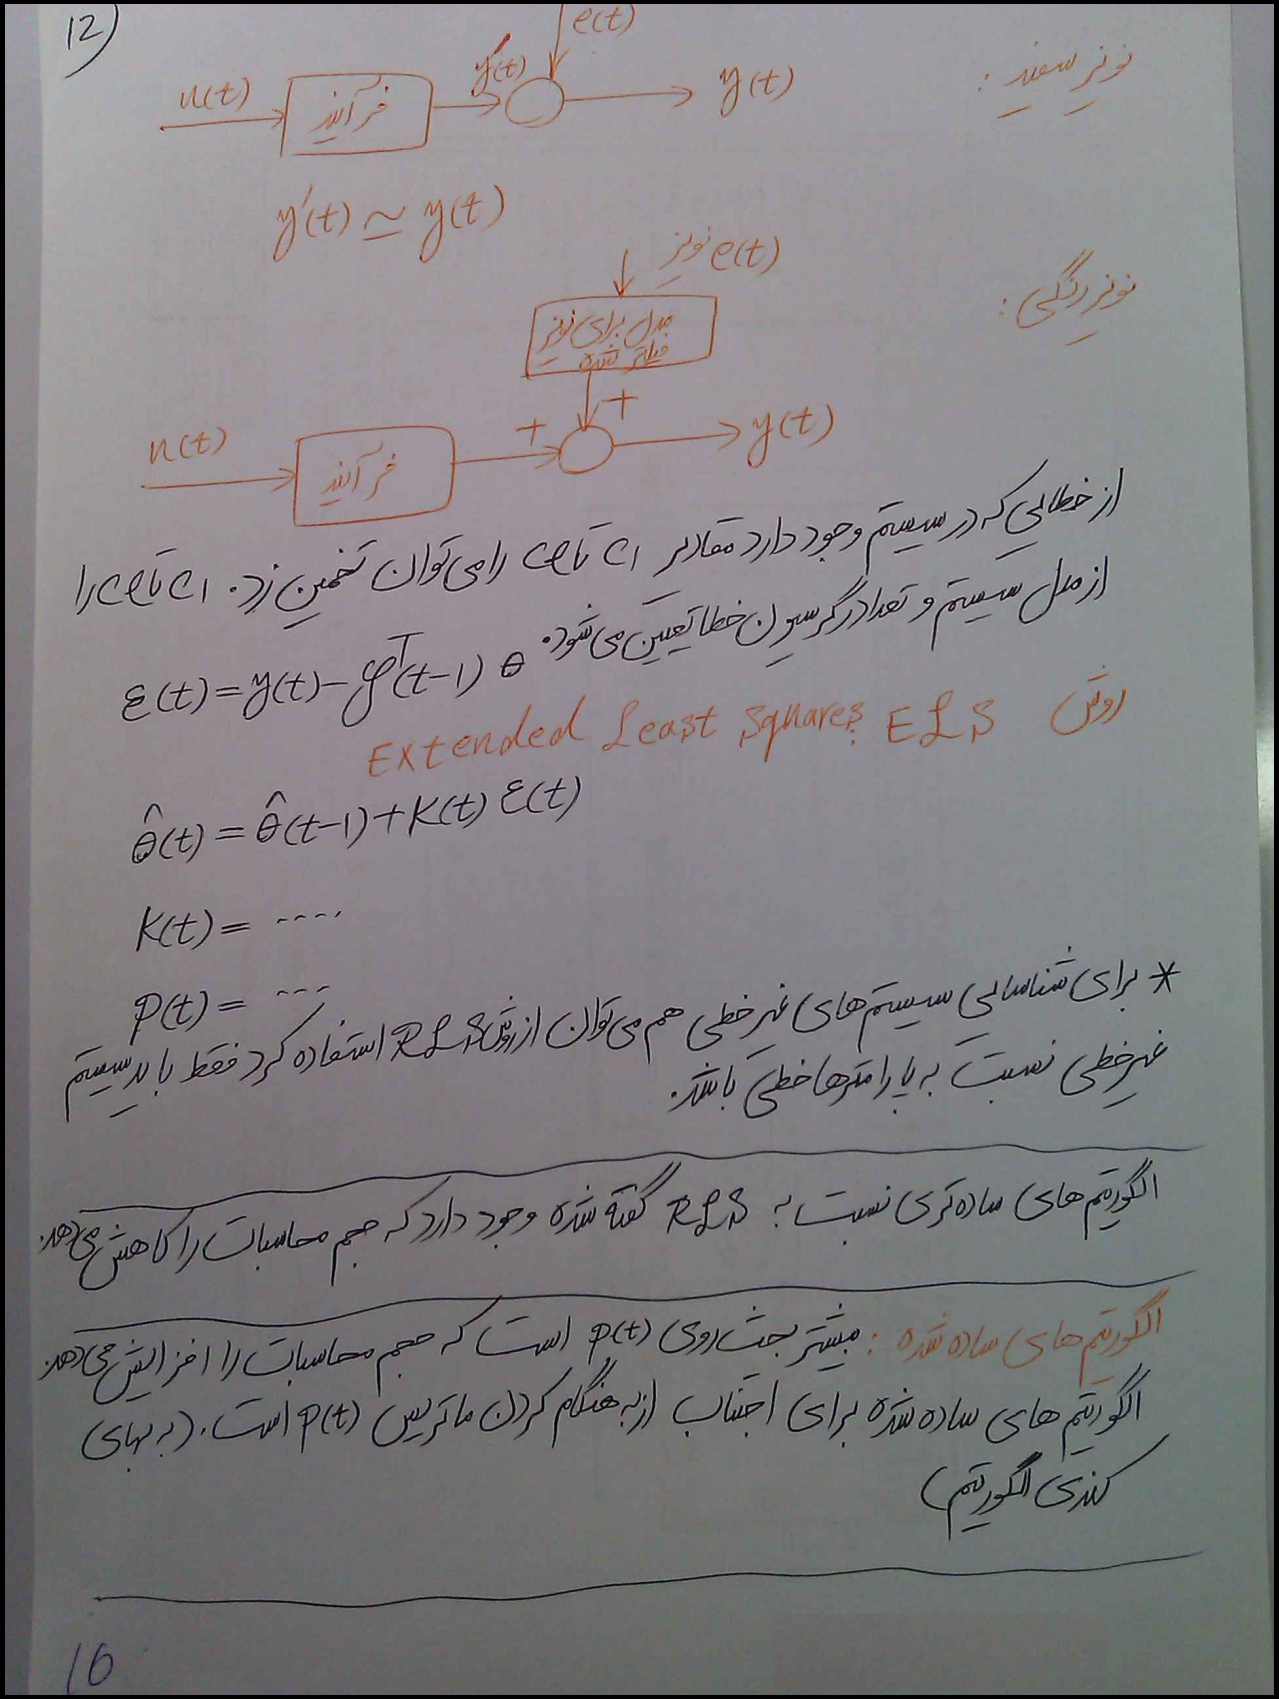 12)
e(t)
نویز سفید :
u(t)
فرآیند
y'(t)
y(t)
y'(t) ≃ y(t)
نویز e(t)
نویز رنگی :
مدل برای نویز
فیلتر شده
+
u(t)
فرآیند
+
y(t)
از خطایی که در سیستم وجود دارد مقادیر c1 تا cl را می توان تخمین زد. c1 تا cl را
از مدل سیستم و تعداد رگرسیون خطا تعیین می شود.
ε(t) = y(t) - φᵀ(t-1) θ
روش ELS : Extended Least Squares
θ̂(t) = θ̂(t-1) + K(t) ε(t)
K(t) = ....
P(t) = ...
* برای شناسایی سیستم های غیر خطی هم می توان از روش RLS استفاده کرد فقط باید سیستم
غیرخطی نسبت به پارامترها خطی باشد.
الگوریتم های ساده تری نسبت به RLS گفته شده وجود دارد که حجم محاسبات را کاهش می دهد.
الگوریتم های ساده شده : بیشتر بحث روی P(t) است که حجم محاسبات را افزایش می دهد.
الگوریتم های ساده شده برای اجتناب از به هنگام کردن ماتریس P(t) است. (به بهای
کندی الگوریتم)
16